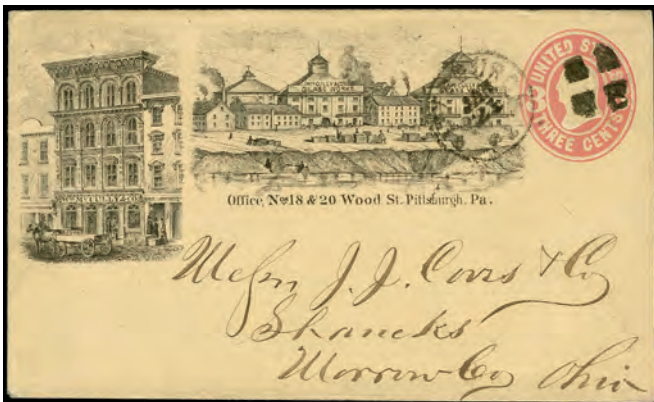 UNITED STATES
THREE CENTS
GLASS WORKS
Office, Nos 18 & 20 Wood St. Pittsburgh, Pa.
Messrs J. J. & Co
Shaucks
Morrow Co Ohio